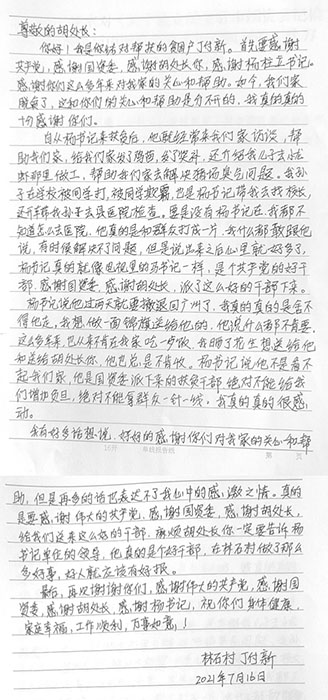 尊敬的胡处长:
你好!我是你结对帮扶的贫困户丁付新。首先要感谢
共产党,感谢国资委,感谢胡处长你,感谢杨桂立书记。
感谢你们这么多年来对我家的关心和帮助。如今,我们家
脱贫了,这和你们的关心和帮助是分不开的,我真的真的
十分感谢你们。
自从杨书记来扶贫后,他就经常来我们家访谈,帮
助我们家,给我们家发了鸡苗,发了资料,还介绍我儿子去
那里做工,帮助我们家去解决猪场臭气问题。我孙
子在学校被同学打,被同学欺霸,也是杨书记带我去找校长,
还开车带我孙子去县医院检查。要是没有杨书记在,我都不
知道怎么去医院,他真的是和群众打成一片,我什么都敢跟他
说,有时候解决不了问题,但是说出来之后心里就一好多了,
杨书记真的就像电视里的书记一样,是个共产党的好干
部,感谢国资委,感谢胡处长,派了这么好的干部下来。
杨书记说他过两天就要撤退回广州了,我真的真的是舍不
得他走,我想做一面锦旗送给他的,他说什么都不肯要,
这么多年来,也从来不在我家吃一步饭,我晒了花生想送给他
和送给胡处长你,他也总是不肯收。杨书记说他不是看不
起我们家,他是国资委派下来的扶贫干部绝对不能给我
们增加负担,绝对不能拿群众一针一线,我真的真的很感
动。
我有好多话想说,好好的感谢你们对我家的关心和帮
助,但是再多的话也表达不了我心中的感激之情。真的
是要感谢伟大的共产党,感谢国资委,感谢胡处长,
给我们送来这么好的干部,麻烦胡处长你一定要告诉杨
书记单位的领导,他真的是个好干部,在林石村做了那么
多好事,好人就应该有好报。
最后,再次谢谢你们,感谢伟大的共产党,感谢国
资委,感谢胡处长,感谢杨书记,祝你们身体健康,
家庭幸福,工作顺利,万事如意!
林石村 丁付新
2021年7月16日